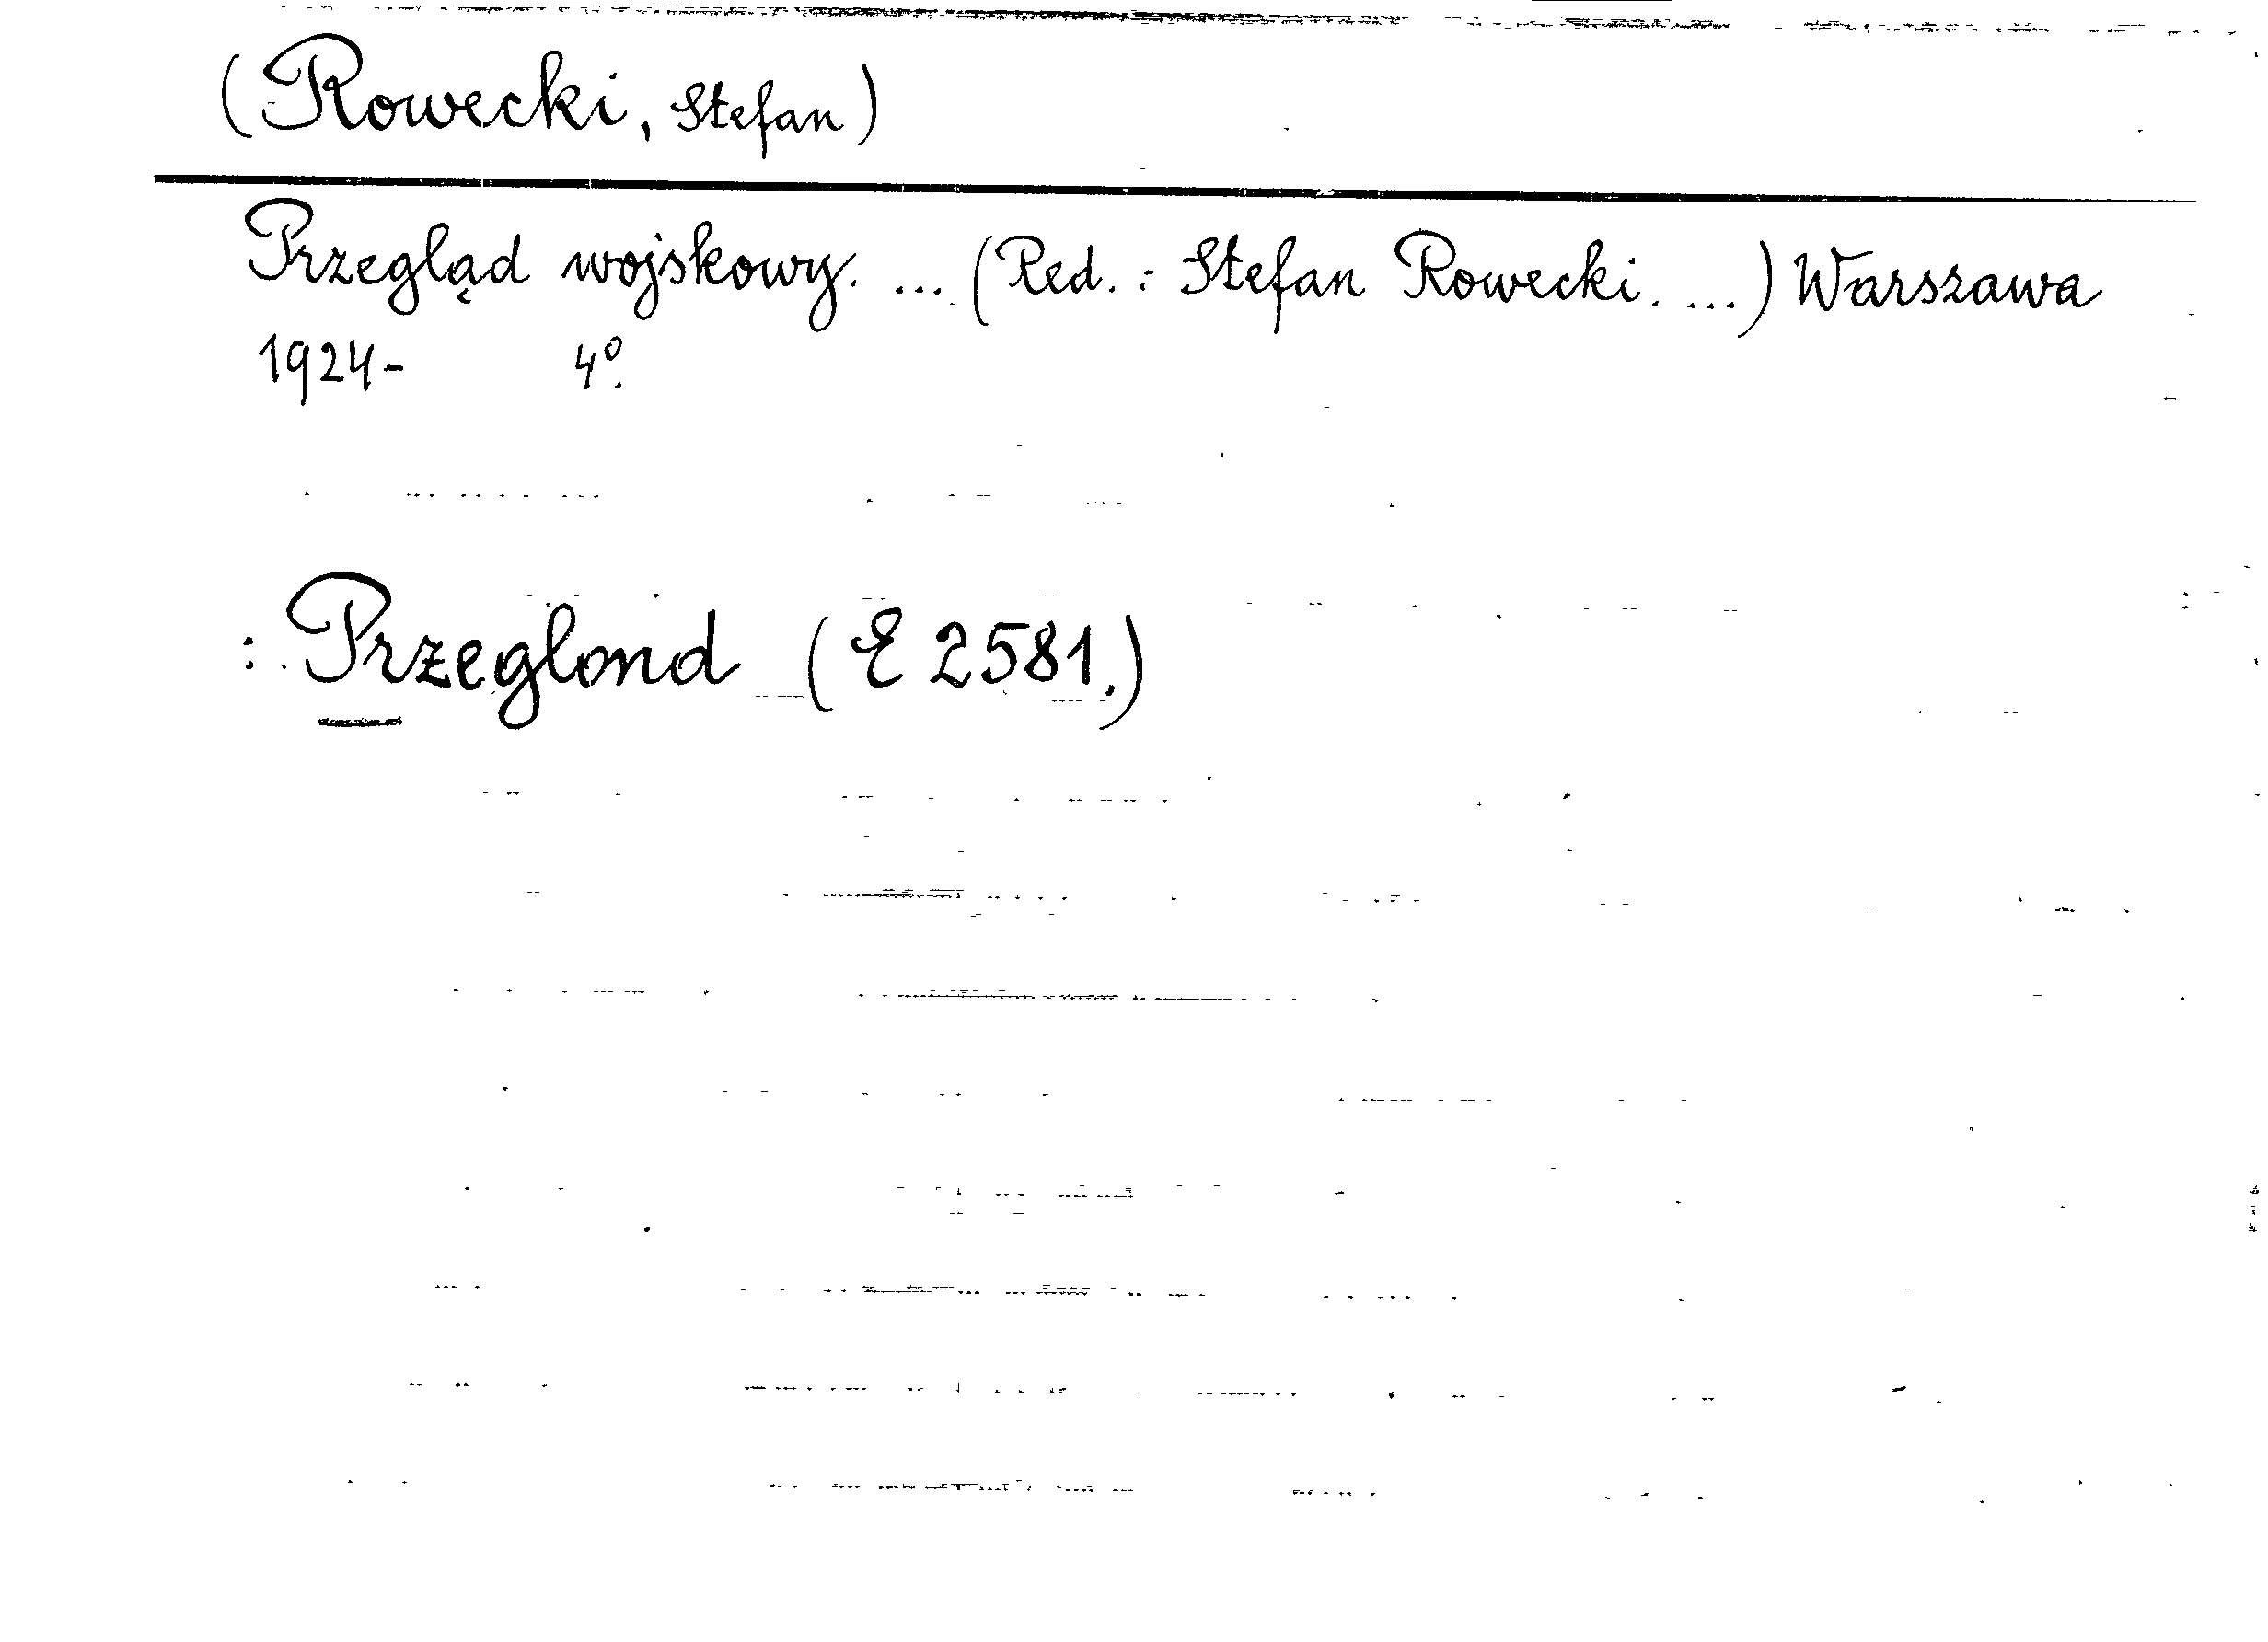 (Rowecki, Stefan)
Przegląd wojskowy. ... (Red.: Stefan Rowecki. ...) Warszawa
1924- 4º.
: Przeglond (E 2581.)